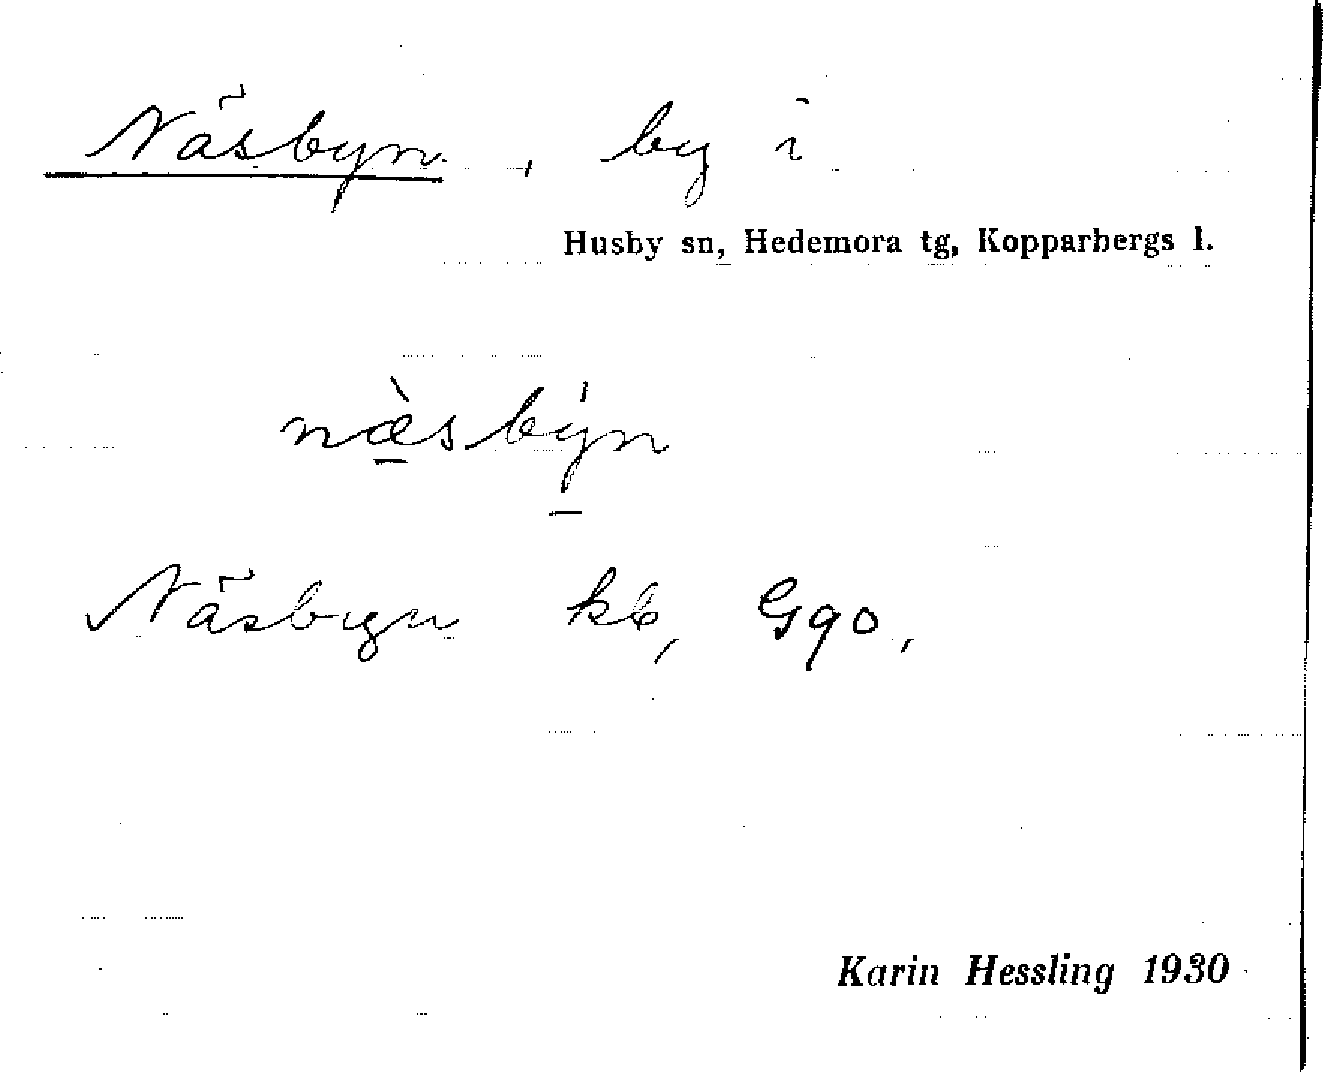 Näsbyn, by i
Husby sn, Hedemora tg, Kopparbergs l.
næ̀sbýn
Näsbyn kb, Gqo,
Karin Hessling 1930